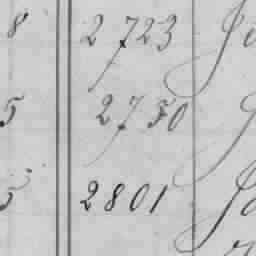 8 2723
5 2750
5 2801